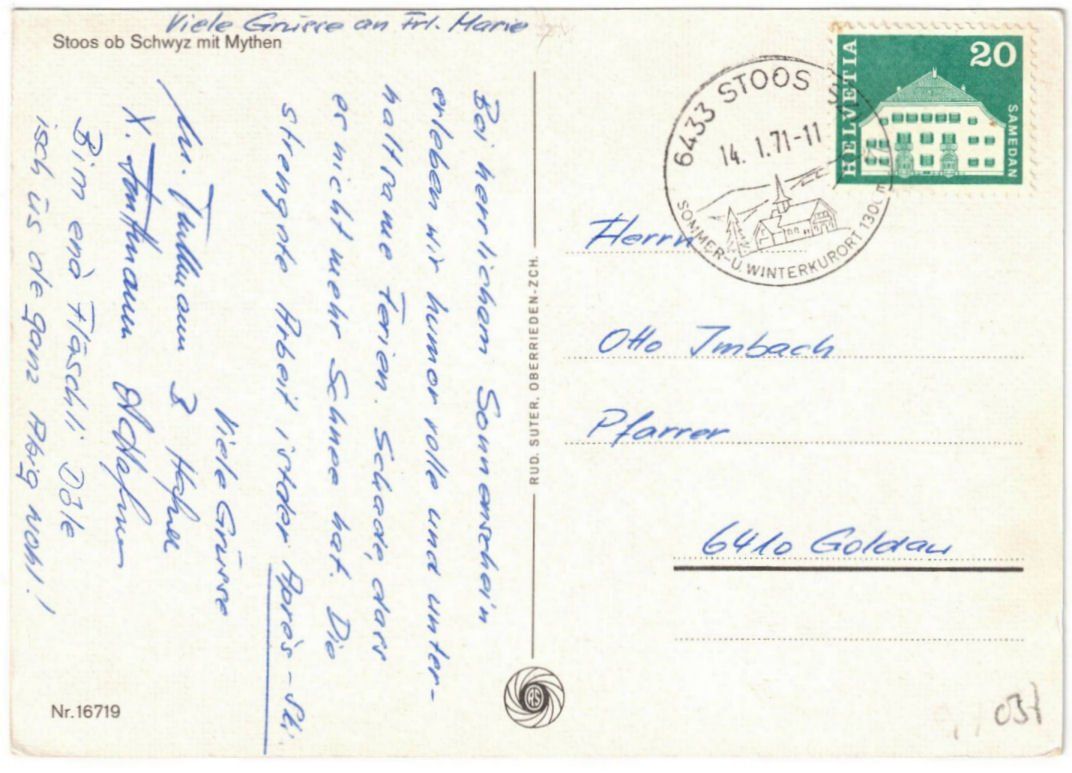 Viele Grüsse an Frl. Marie
Stoos ob Schwyz mit Mythen
Bei herrlichem Sonnenschein
erleben wir humorvolle und unter-
haltsame Ferien. Schade, dass
es nicht mehr Schnee hat. Die
strengste Arbeit ist der Après-Ski.
Viele Grüsse
B. Hafner
X.
Bim enä Fläschli Dôle
isch üs de ganz Abig wohl!
Nr. 16719
RUD. SUTER, OBERRIEDEN-ZCH.
RS
6433 STOOS SZ
14. 1.71-11
SOMMER- U. WINTERKURORT 1300 m
HELVETIA
20
SAMEDAN
Herrn
Otto Imbach
Pfarrer
6410 Goldau